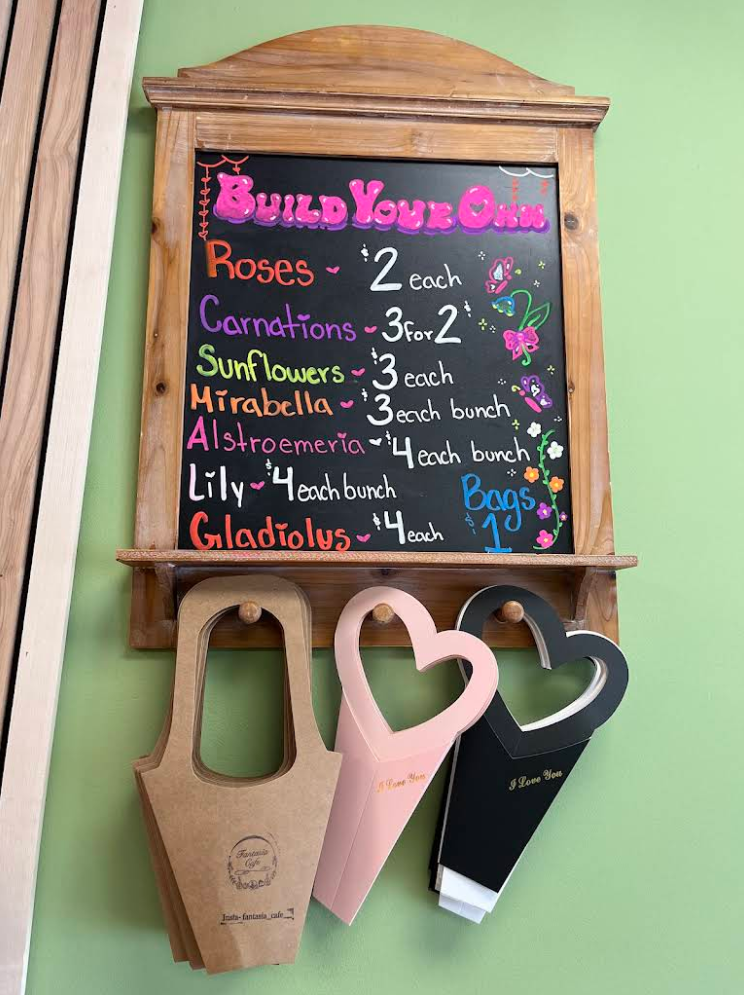 Build Your Own
Roses - $2 each
Carnations - 3 for $2
Sunflowers - $3 each
Mirabella - $3 each bunch
Alstroemeria - $4 each bunch
Lily - $4 each bunch
Bags
$1
Gladiolus - $4 each
I Love You
I Love You
Fantasia
Cafe